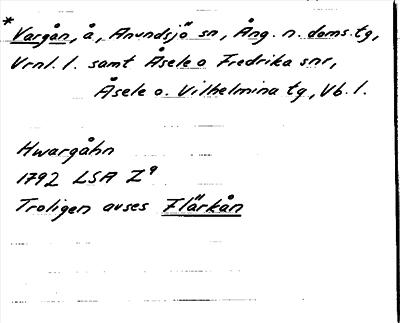 * Vargån, å, Anundsjö sn, Ång. n. doms. tg,
Vrnl. l. samt Åsele o Fredrika snr,
Åsele o. Vilhelmina tg, Vb. l.
Hwargåhn
1792 LSA Z⁹
Troligen avses Flärkån